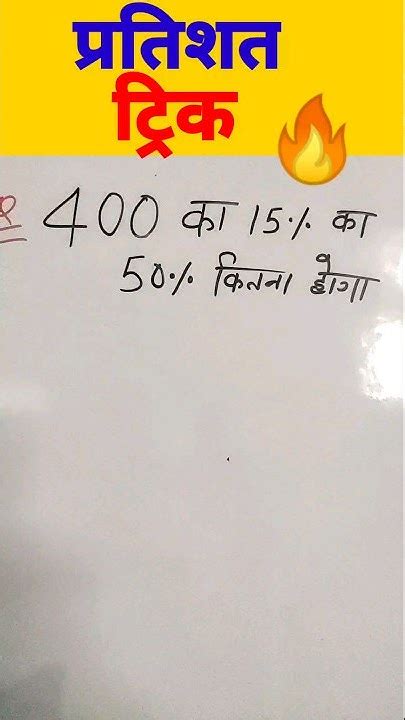 प्रतिशत
ट्रिक
400 का 15% का
50% कितना होगा